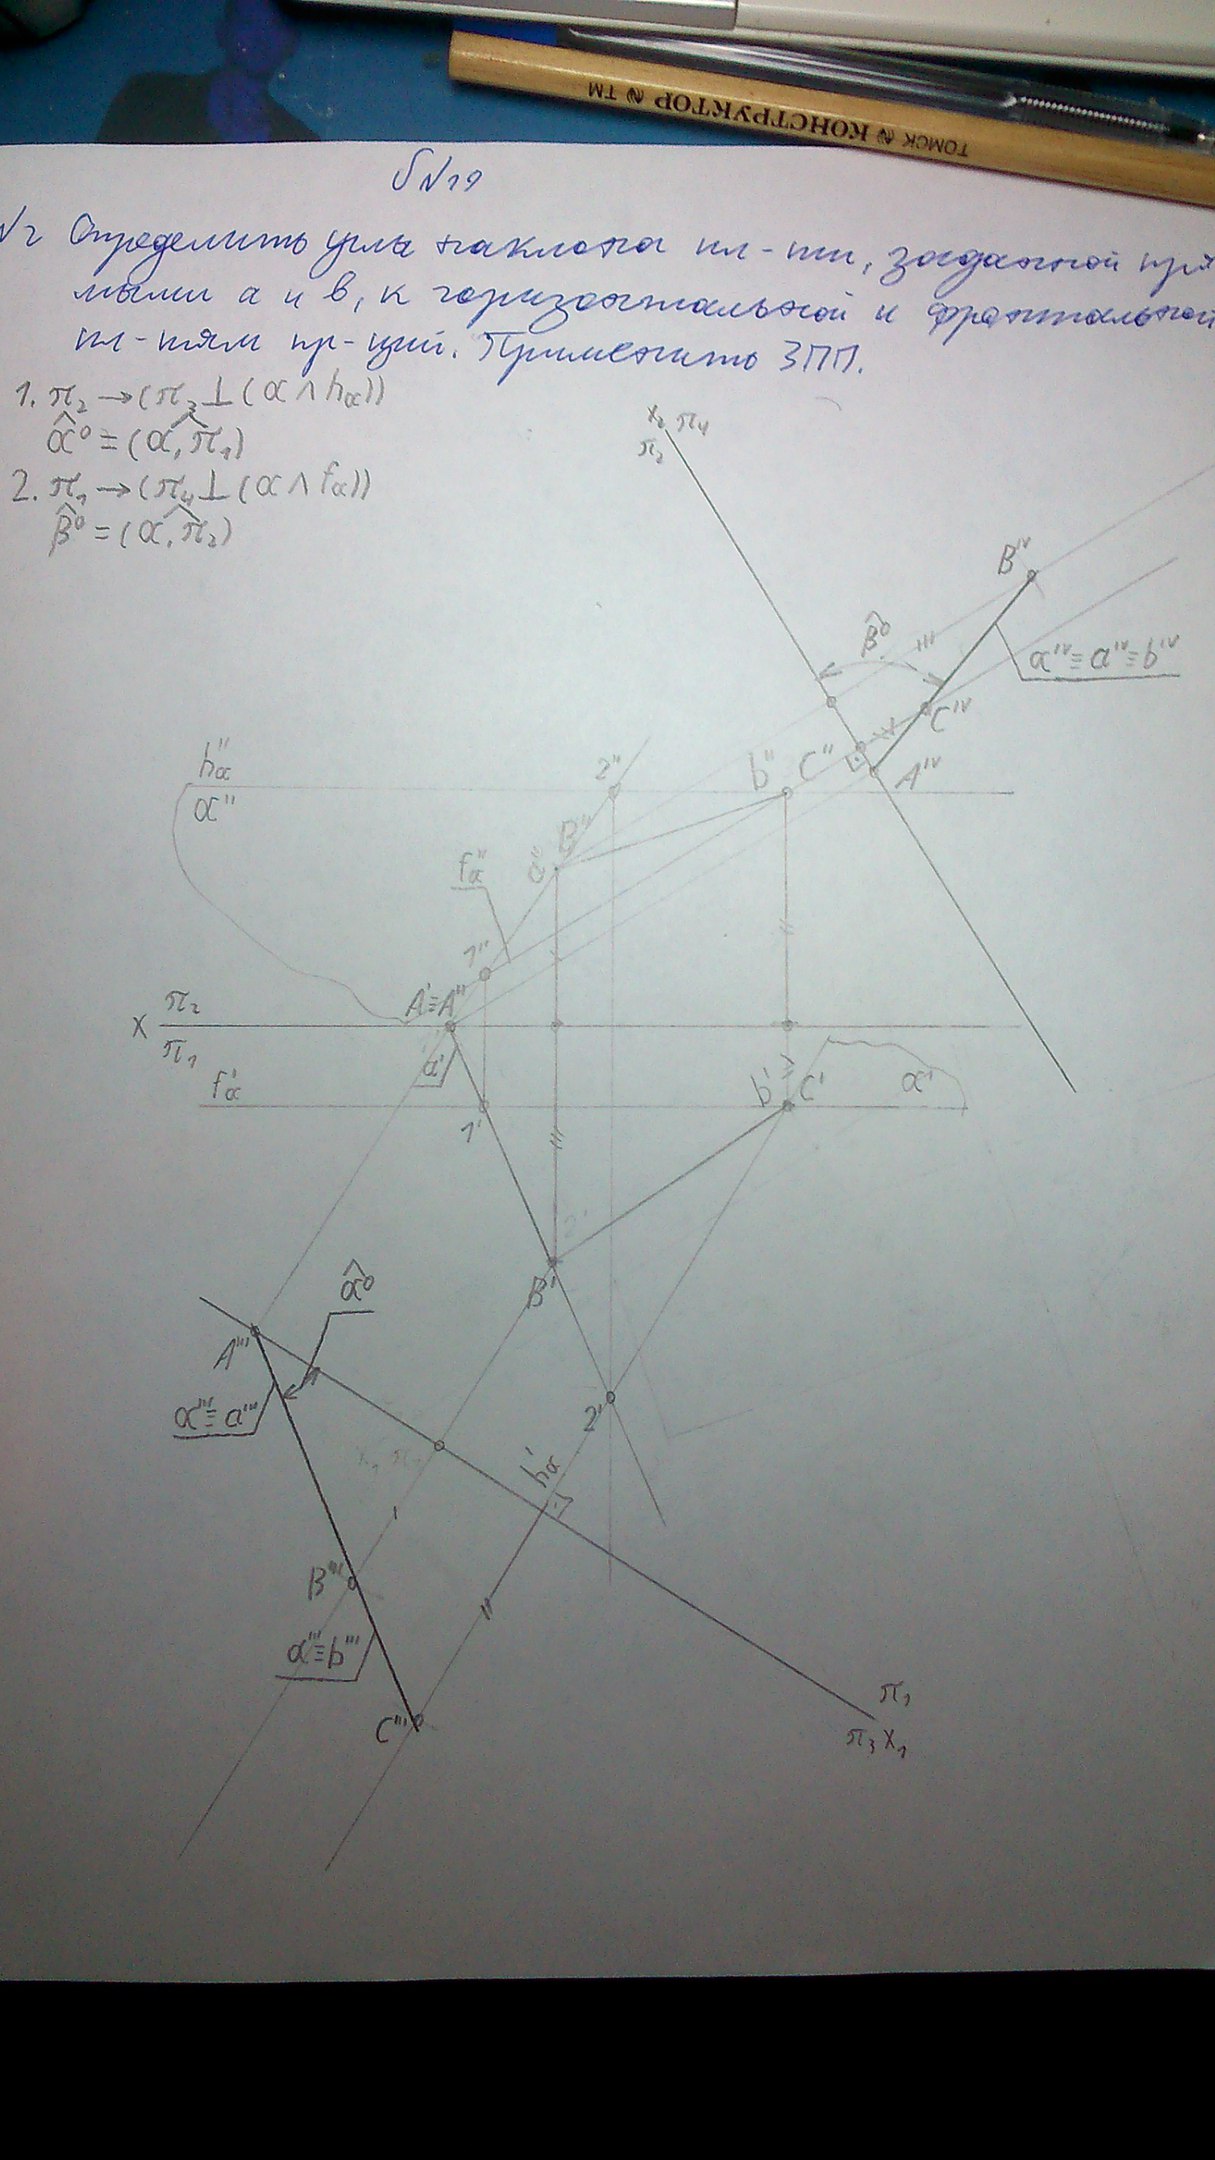 ТОМСК КОНСТРУКТОР ТМ
БN19
N2 Определить углы наклона пл-ти, заданной пря
мыми а и в, к горизонтальной и фронтальной
пл-тям пр-ций. Применить ЗПП.
1. π₂ → (π₃ ⊥ (α ∧ hα))
α̂⁰ ≡ (α,^π₁)
2. π₁ → (π₄ ⊥ (α ∧ fα))
β̂⁰ = (α,^π₂)
x₂ π₄
π₂
B'ᵛ
β̂⁰
α'ᵛ≡a'ᵛ≡b'ᵛ
C'ᵛ
A'ᵛ
h''α
α''
2''
b'' C''
B''
a''
f''α
1''
A'≡A''
x π₂
π₁
a'
f'α
1'
b' C'
α'
B'
α̂⁰
A'''
α'''≡a'''
2'
h'α
B'''
α'''≡b'''
C'''
π₁
π₃ x₁